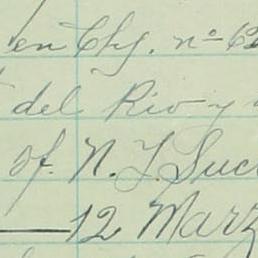 en Chq. nº 6
del Rio y
of. N. Y. Suc
12 Marz